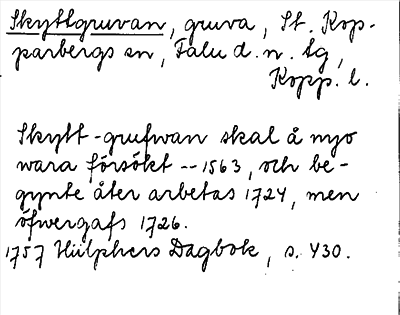 Skyttgruvan, gruva, St. Kop-
parbergs sn, Falu d. n. tg,
Kopp. l.
Skytt-grufwan skal å nyo
wara försökt -- 1563, och be-
gynte åter arbetas 1724, men
öfwergafs 1726.
1757 Hülphers Dagbok, s. 430.